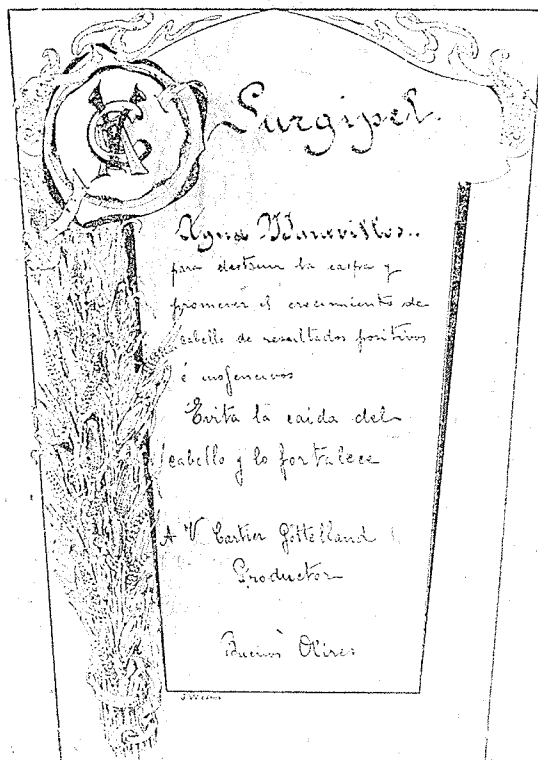 Surgipel.
Agua Maravillosa..
para destruir la caspa y
promover el crecimiento de
cabello de resultados positivos
é inofencivos
Evita la caida del
cabello y lo fortalece
A V Cartier Gottelland
Productor
Buenos Aires